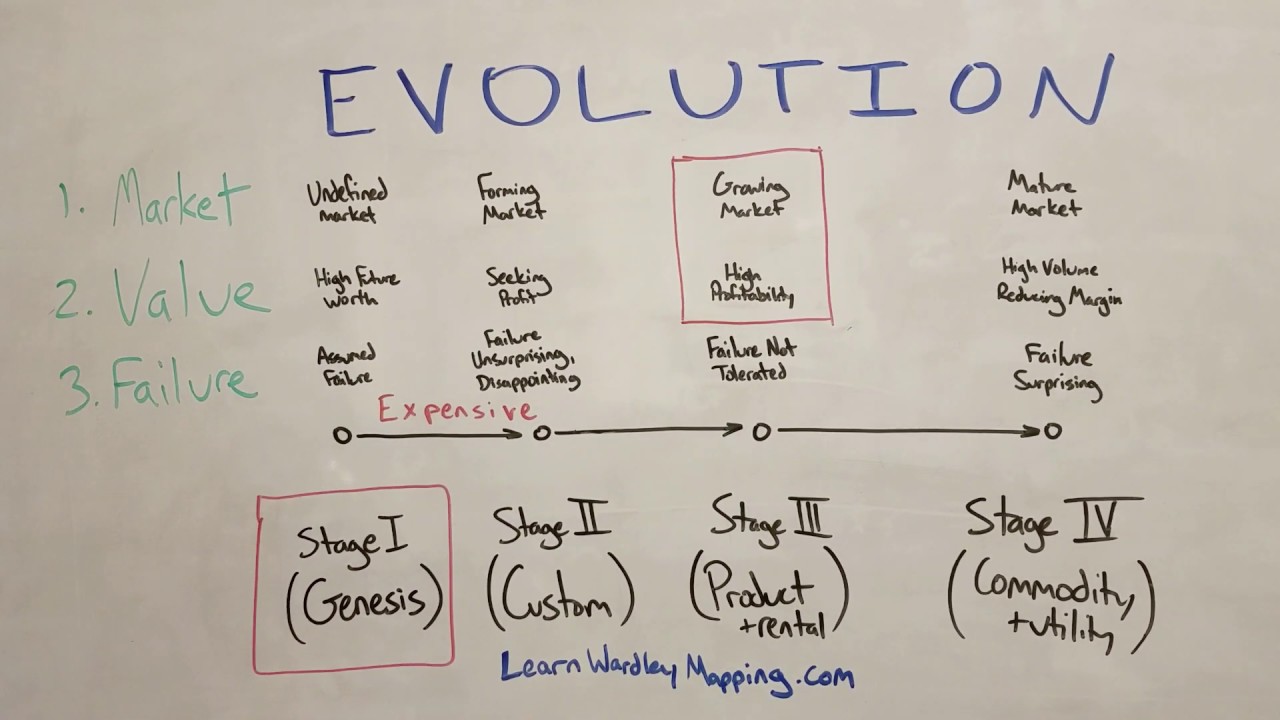 EVOLUTION
1. Market
Undefined
market
Forming
Market
Growing
Market
Mature
Market
2. Value
High Future
Worth
Seeking
Profit
High
Profitability
High Volume
Reducing Margin
3. Failure
Assumed
Failure
Failure
Unsurprising,
Disappointing
Failure Not
Tolerated
Failure
Surprising
Expensive
Stage I
(Genesis)
Stage II
(Custom)
Stage III
(Product
+rental)
Stage IV
(Commodity
+utility)
LearnWardleyMapping.com